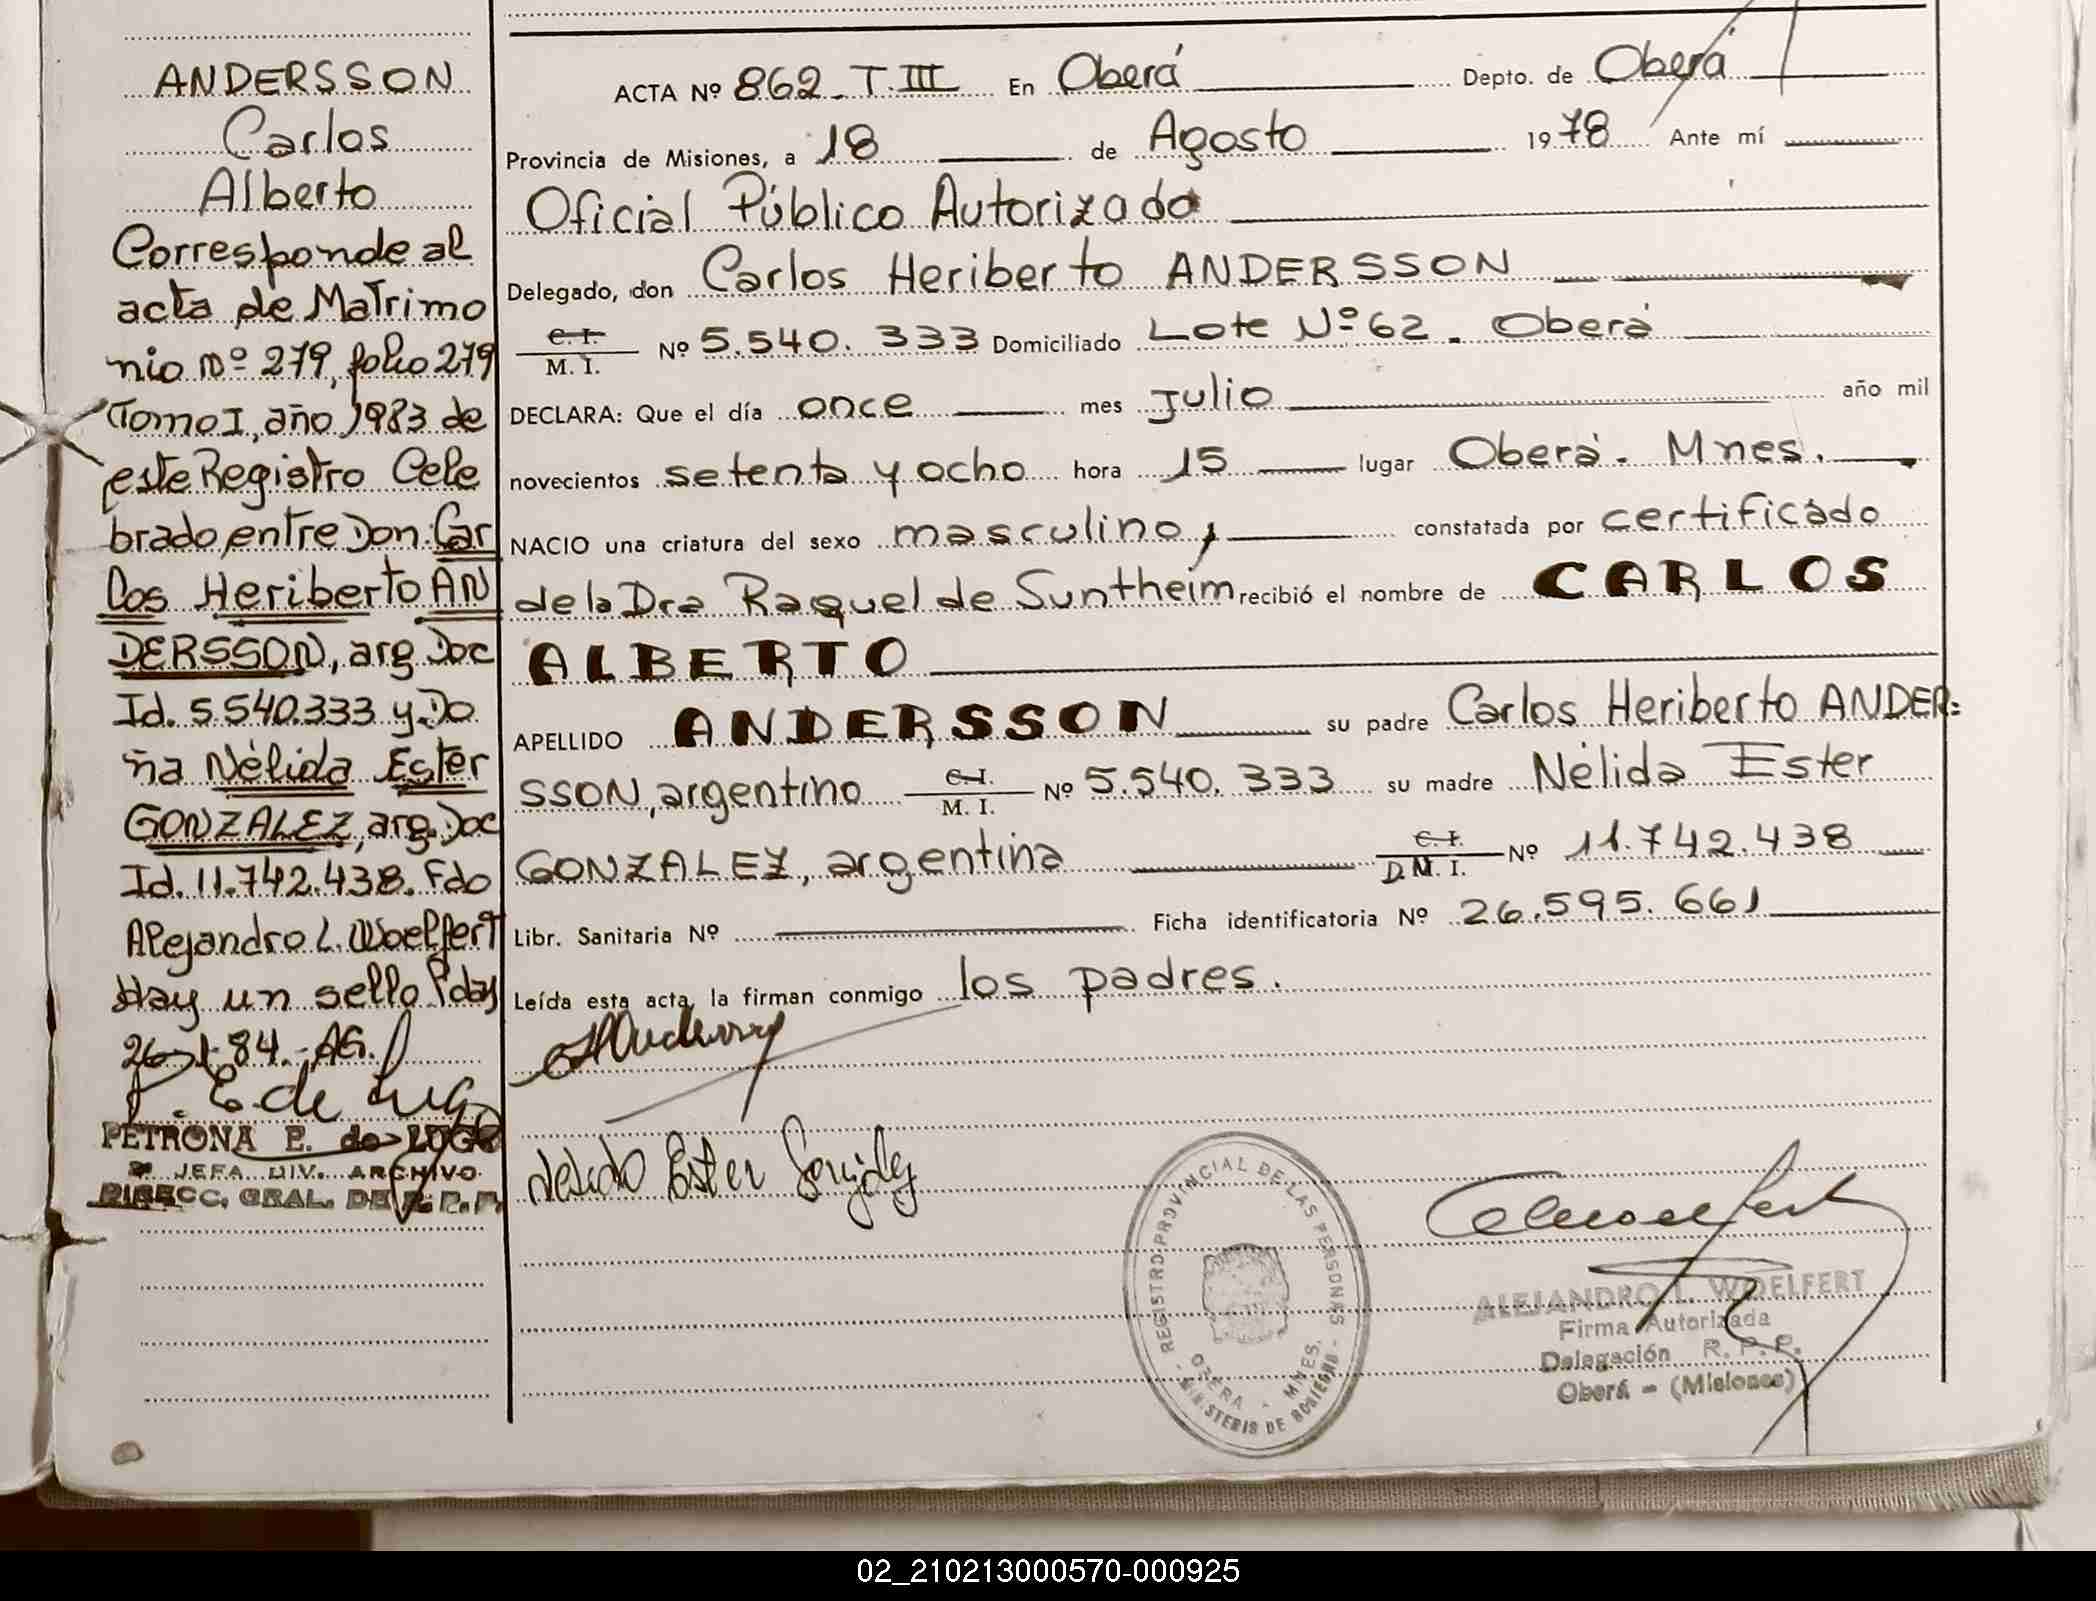 ANDERSSON
Carlos
Alberto
Corresponde al
acta de Matrimo
nio Nº 279, folio 279
Tomo I, año 1983 de
este Registro Cele
brado entre Don: Car
los Heriberto AN
DERSSON, arg. Doc
Id. 5.540.333 y Do
ña Nélida Ester
GONZALEZ, arg. Doc
Id. 11.742.438. Fdo
Alejandro L. Woelfert
Hay un sello Pdas
26-1-84.-AG.
P. E. de Lugo
PETRONA E. de LUGO
JEFA DIV. ARCHIVO
DIRECC. GRAL. DE R. P. P.
ACTA Nº 862 - T. III En Oberá Depto. de Oberá
Provincia de Misiones, a 18 de Agosto 1978 Ante mí
Oficial Público Autorizado
Delegado, don Carlos Heriberto ANDERSSON
C. I. / M. I. Nº 5.540.333 Domiciliado Lote Nº 62 - Oberá
DECLARA: Que el día once mes Julio año mil
novecientos setenta y ocho hora 15 lugar Oberá - Mnes.
NACIO una criatura del sexo masculino, constatada por certificado
de la Dra Raquel de Suntheim recibió el nombre de CARLOS
ALBERTO
APELLIDO ANDERSSON su padre Carlos Heriberto ANDER=
SSON, argentino C. I. / M. I. Nº 5.540.333 su madre Nélida Ester
GONZALEZ, argentina C. I. / D. M. I. Nº 11.742.438
Libr. Sanitaria Nº Ficha identificatoria Nº 26.595.661
Leída esta acta, la firman conmigo los padres.
Nelida Ester González
REGISTRO PROVINCIAL DE LAS PERSONAS
OBERA - MNES.
MINISTERIO DE GOBIERNO
ALEJANDRO L. WOELFERT
Firma Autorizada
Delegación R. P. P.
Oberá - (Misiones)
02_210213000570-000925